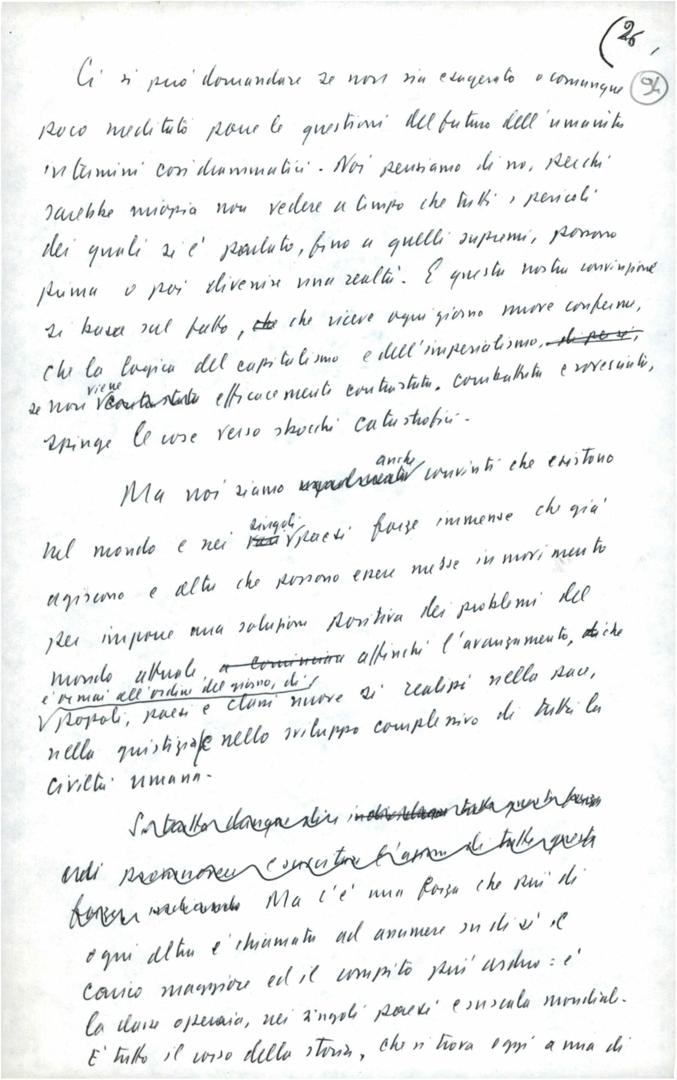 (26,
94
Ci si può domandare se non sia esagerato o comunque
poco meditato porre le questioni del futuro dell'umanità
in termini così drammatici. Noi pensiamo di no, perché
sarebbe miopia non vedere a tempo che tutti i pericoli
dei quali si è parlato, fino a quelli supremi, possono
prima o poi divenire una realtà. E questa nostra convinzione
si basa sul fatto, che che riceve ogni giorno nuove conferme,
che la logica del capitalismo e dell'imperialismo, di per sé,
se non viene contrastata efficacemente contrastata, combattuta e rovesciata,
spinge le cose verso sbocchi catastrofici.
Ma noi siamo anche convinti che esistono
nel mondo e nei singoli paesi forze immense che già
agiscono e altre che possono essere messe in movimento
per imporre una soluzione positiva dei problemi del
mondo attuale, a cominciare affinché l'avanzamento, che
è ormai all'ordine del giorno, di
popoli, paesi e classi nuove si realizzi nella pace,
nella giustizia e nello sviluppo complessivo di tutta la
civiltà umana.
Si tratta dunque di tutta queste forze
e di promuovere e suscitare l'azione di tutte queste
forze Ma c'è una forza che più di
ogni altra è chiamata ad assumere su di sé il
carico maggiore ed il compito più arduo: è
la classe operaia, nei singoli paesi e su scala mondiale.
E' tutto il corso della storia, che si trova oggi a una di